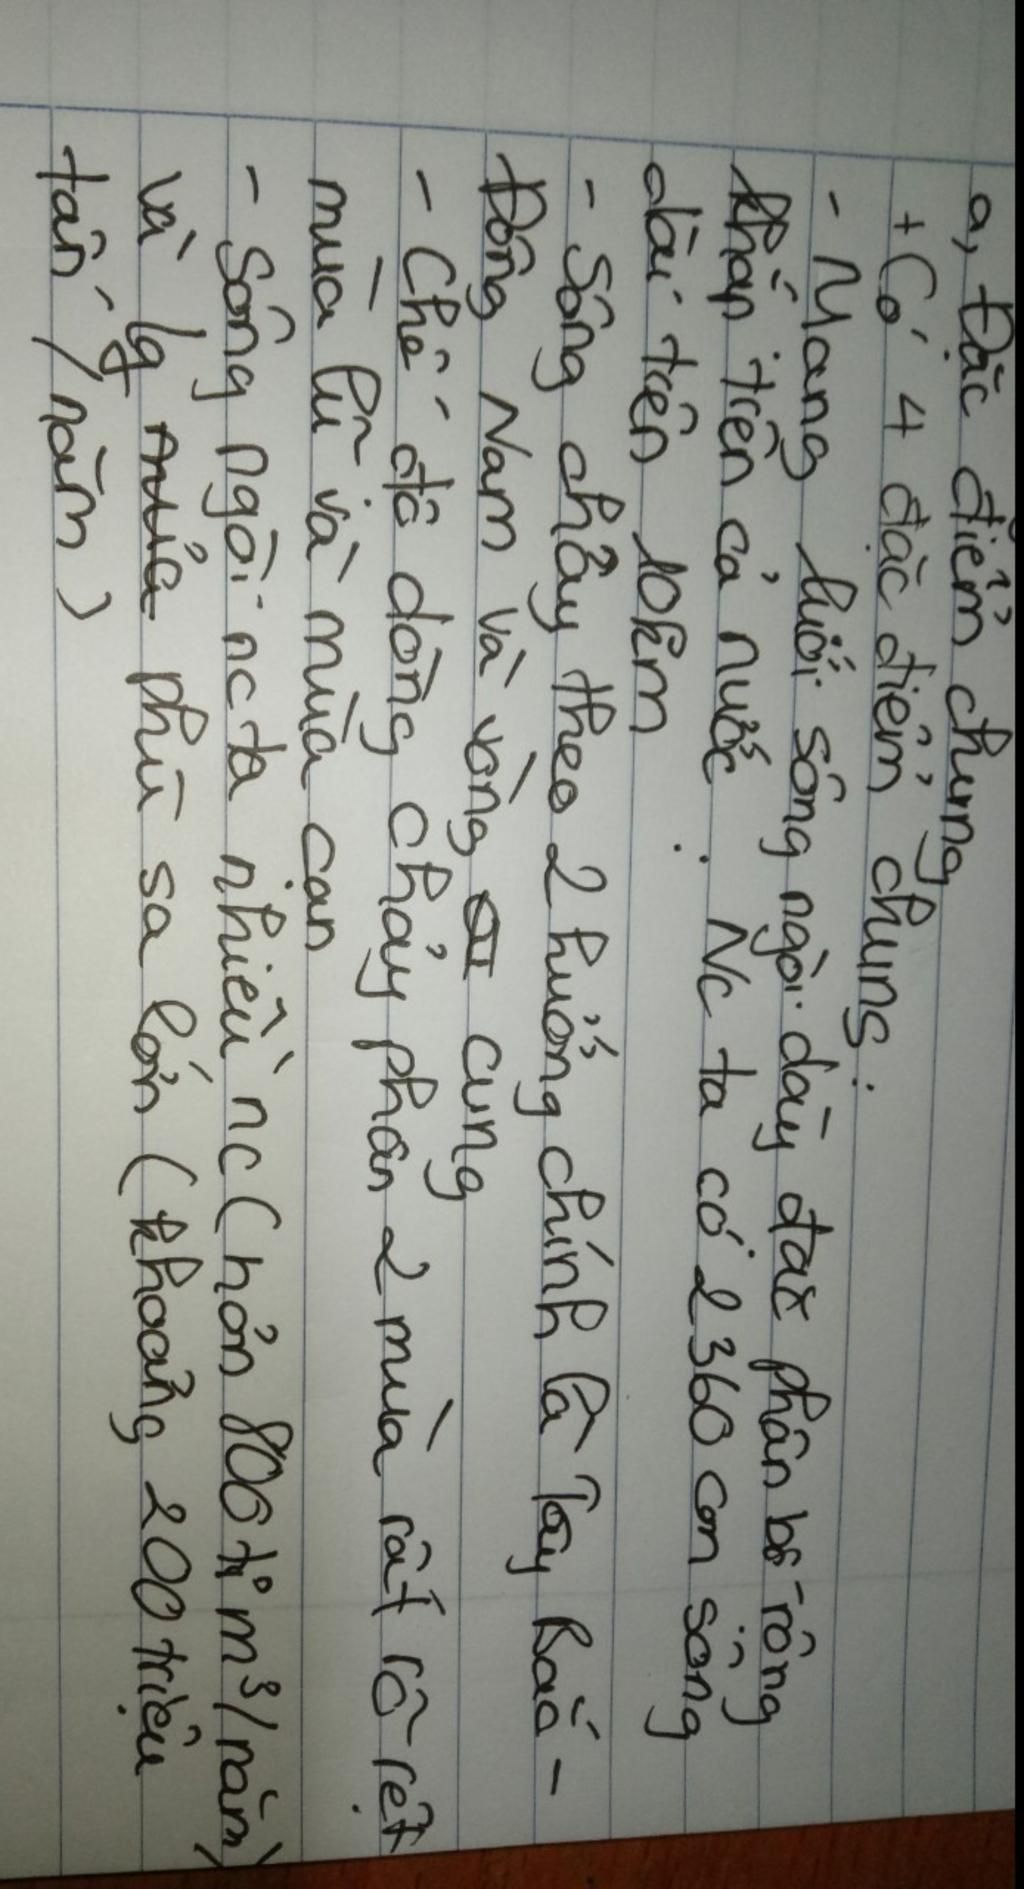 a, Đặc điểm chung
+ Có 4 đặc điểm chung:
- Mạng lưới sông ngòi dày đặc phân bố rộng
khắp trên cả nước: Nc ta có 2360 con sông
dài trên 10km
- Sông chảy theo 2 hướng chính là Tây Bắc -
Đông Nam và vòng cung
- Chế độ dòng chảy phân 2 mùa rất rõ rệt
mùa lũ và mùa cạn
- Sông ngòi nc ta nhiều nc (hơn 800 tỉ m³/năm)
và lg phù sa lớn (khoảng 200 triệu
tấn/năm)